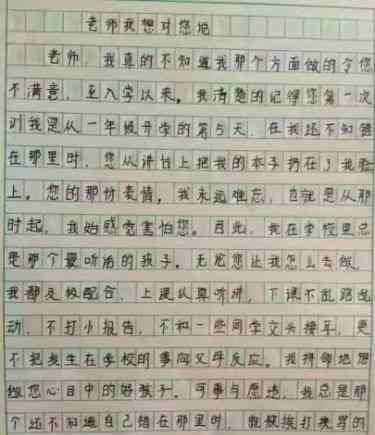 老师我想对您说
老师，我真的不知道我那个方面做的令您
不满意，至入学以来，我清楚的记得您第一次
训我是从一年级开学的第5天，在我还不知错
在那里时，您从讲台上把我的本子扔在了我脸
上。您的那份表情，我永远难忘，也就是从那
时起，我始感觉害怕您。因此，我在学校里总
是那个最听话的孩子。无论您让我怎么去做，
我都及极配合，上课认真听讲，下课不乱跑乱
动，不打小报告，不和一些同学交头接耳，更
不把发生在学校的事向父母反应。我拼命地想
做您心目中的好孩子，可事与愿违，我总是那
个还不知道自己错在那里时，就被挨打挨骂的